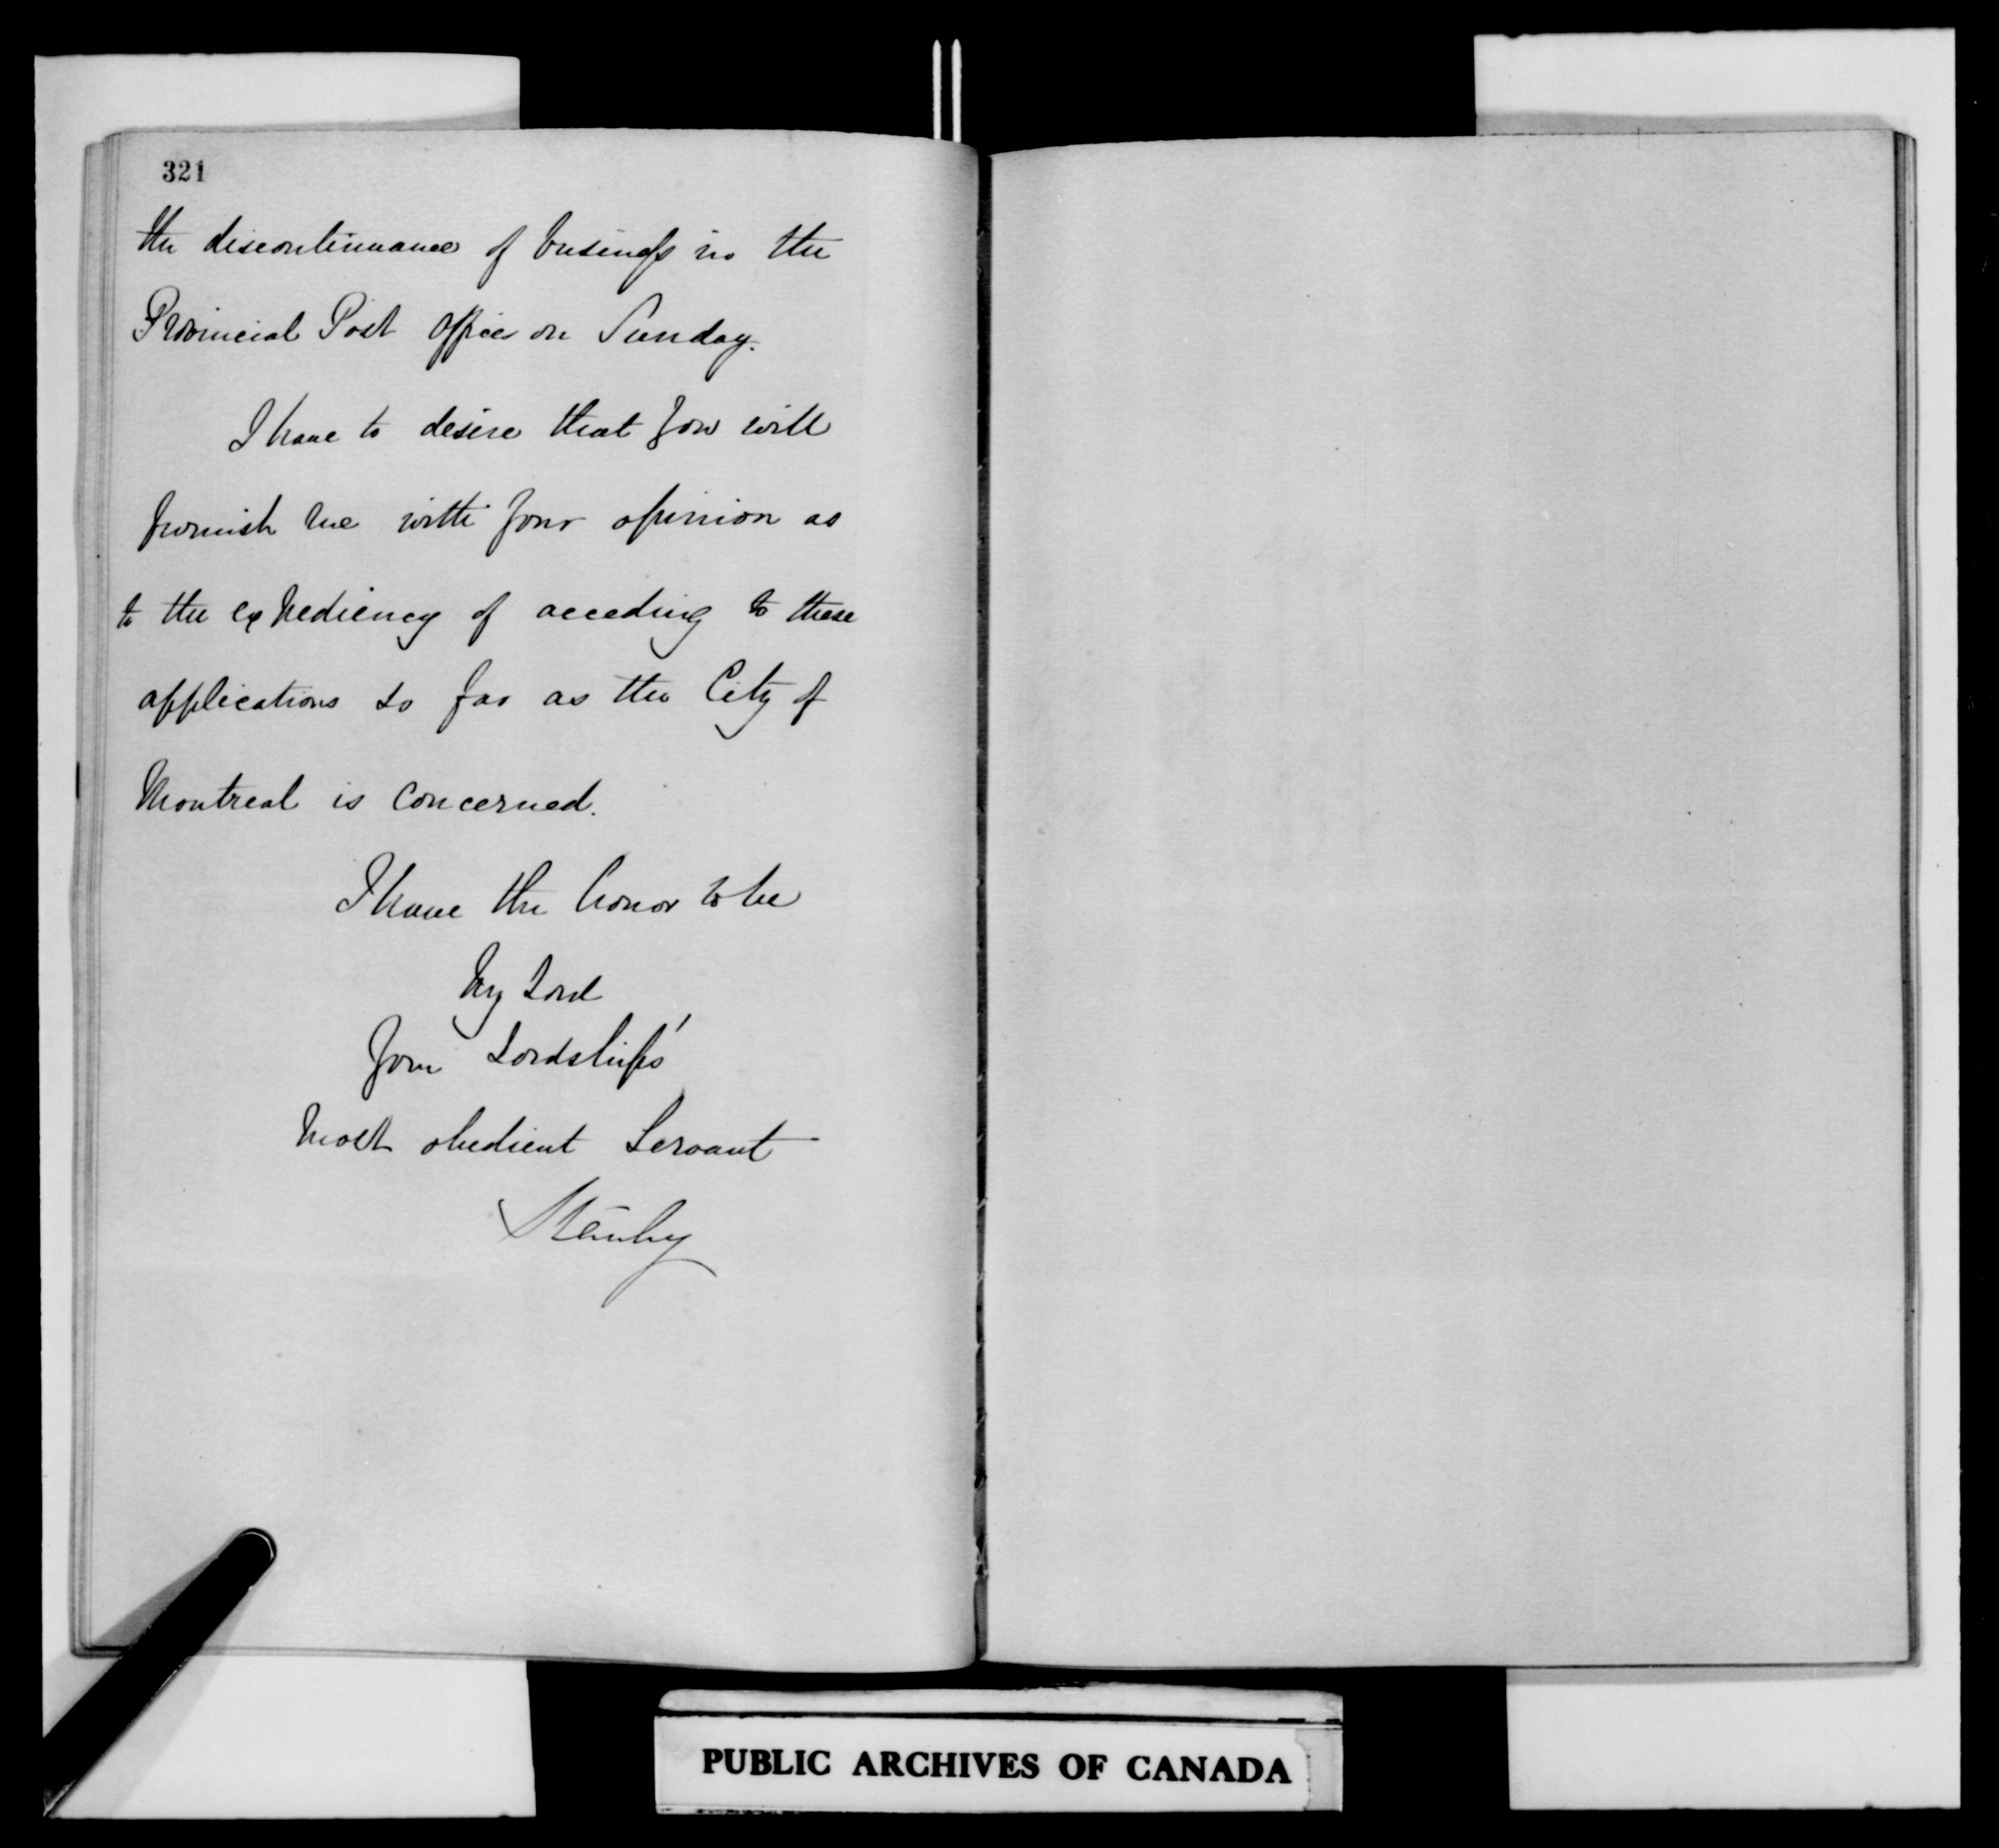 321
the discontinuance of business in the
Provincial Post Office on Sunday.
I have to desire that you will
furnish me with your opinion as
to the expediency of acceding to these
applications so far as the City of
Montreal is concerned.
I have the honor to be
My Lord
Your Lordships'
Most obedient Servant
Stanley
PUBLIC ARCHIVES OF CANADA